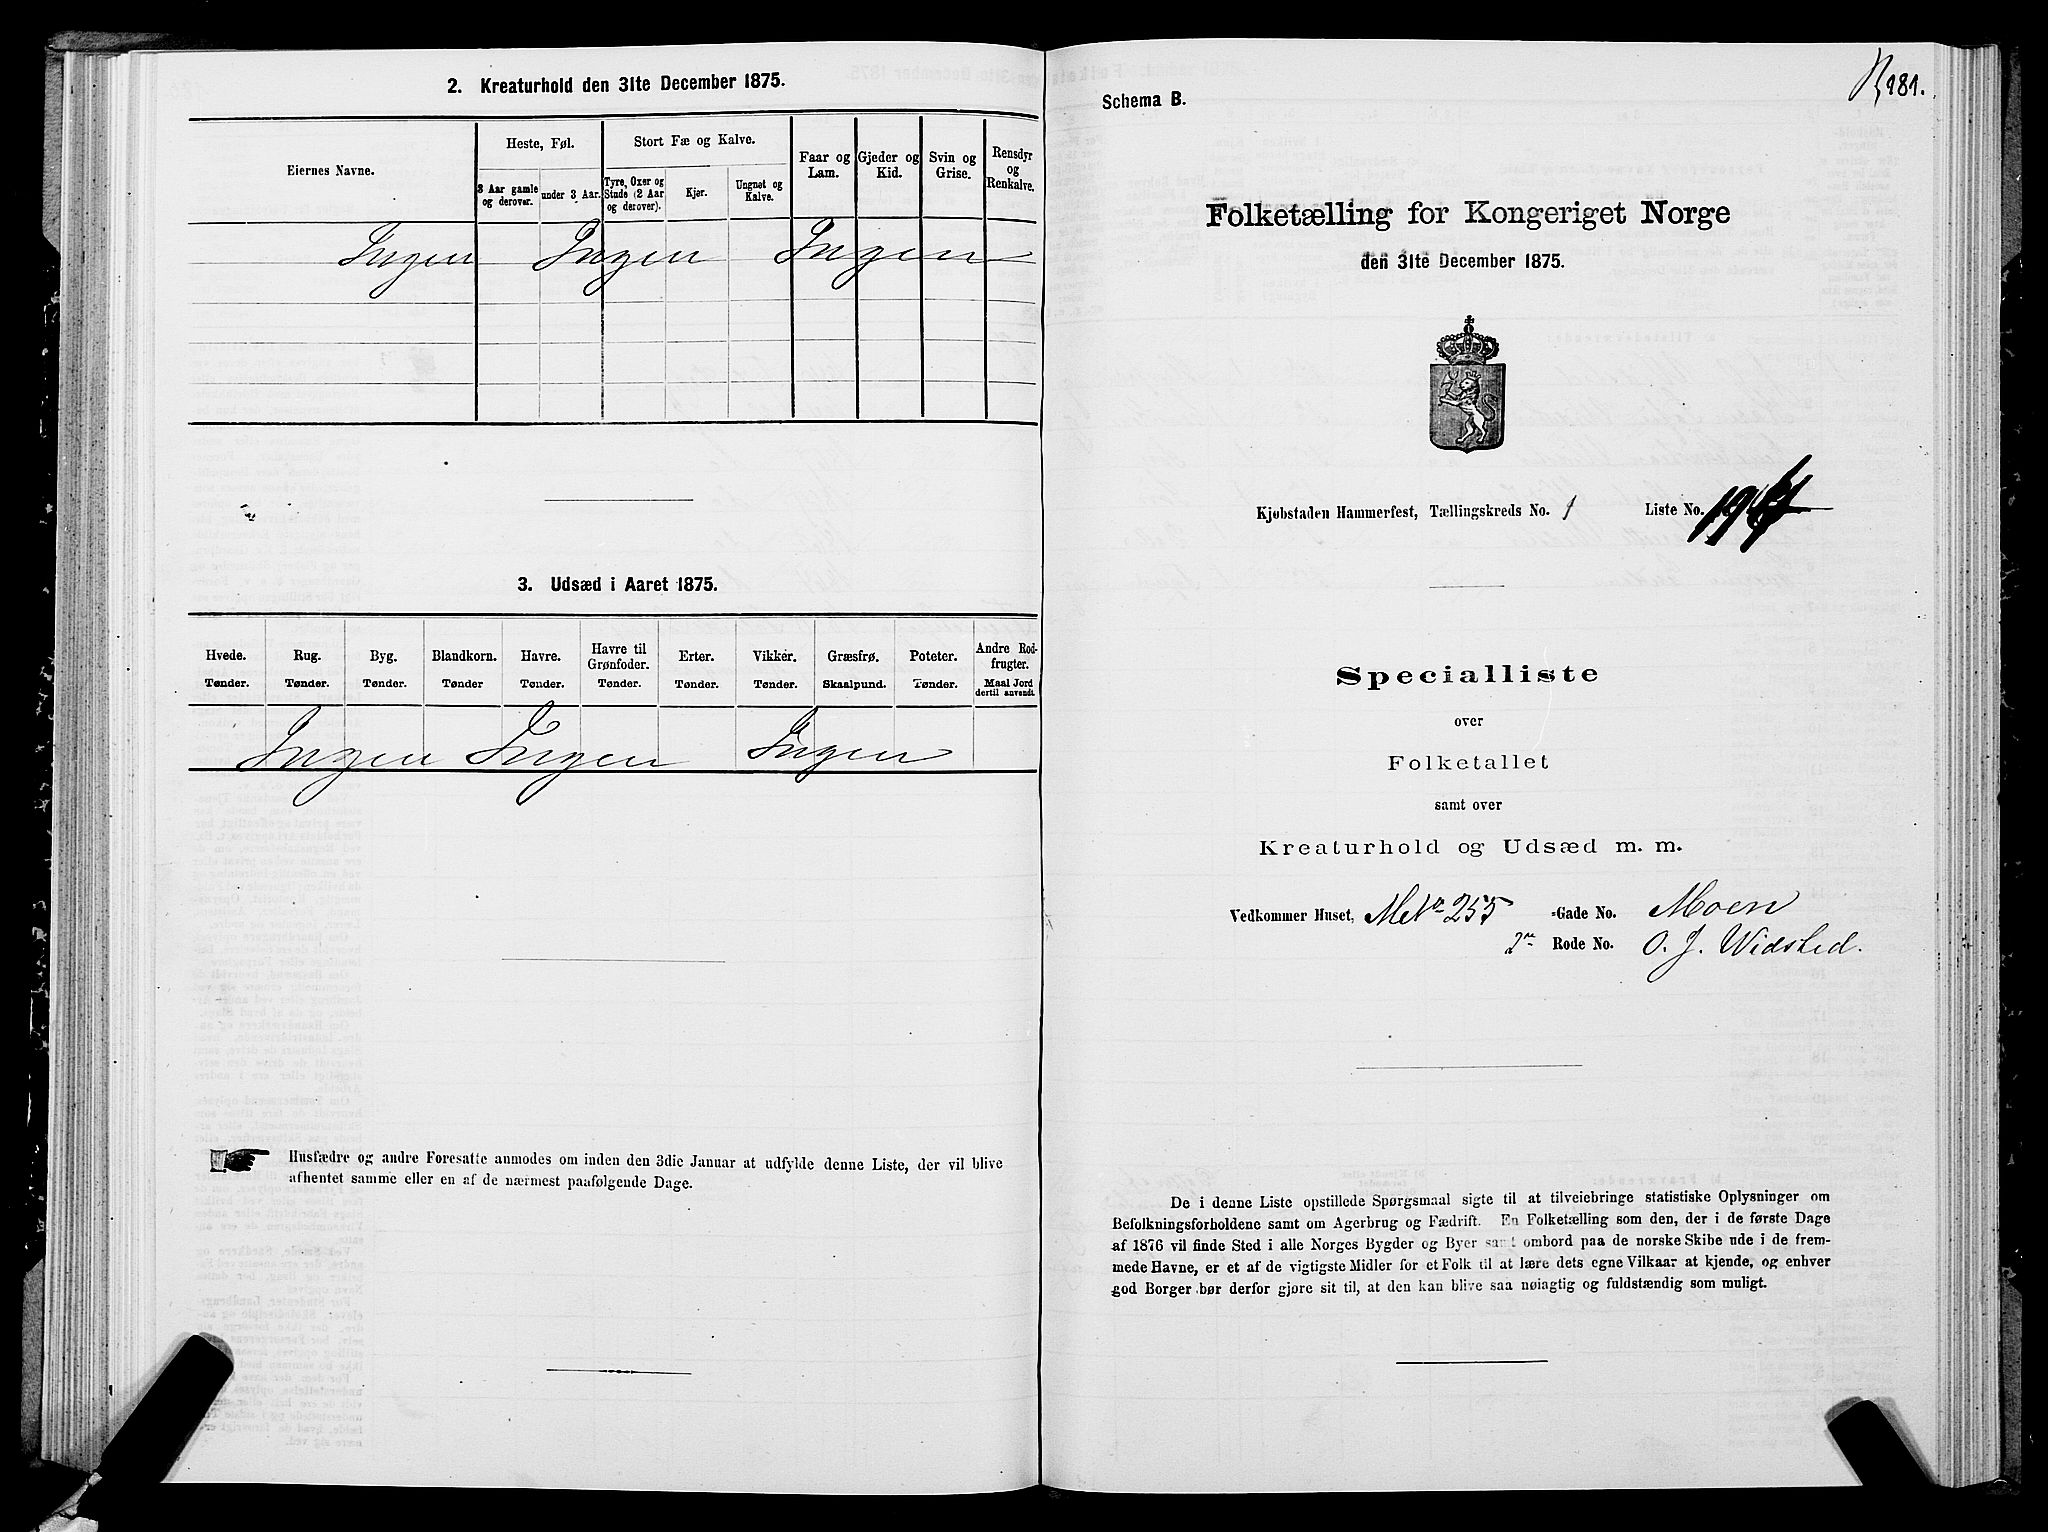 2. Kreaturhold den 31te December 1875.
Eiernes Navne.
Heste, Føl.
Stort Fæ og Kalve.
Faar og Lam.
Gjeder og Kid.
Svin og Grise.
Rensdyr og Renkalve.
3 Aar gamle og derover.
under 3 Aar.
Tyre, Oxer og Stude (2 Aar og derover).
Kjør.
Ungnøt og Kalve.
Ingen Ingen Ingen
3. Udsæd i Aaret 1875.
Hvede. Rug. Byg. Blandkorn. Havre. Havre til Grønfoder. Erter. Vikker. Græsfrø. Poteter. Andre Rodfrugter.
Tønder. Tønder. Tønder. Tønder Tønder. Tønder. Tønder. Tønder. Skaalpund. Tønder. Maal Jord dertil anvendt.
Ingen Ingen Ingen
Husfædre og andre Foresatte anmodes om inden den 3die Januar at udfylde denne Liste, der vil blive
afhentet samme eller en af de nærmest paafølgende Dage.
181.
Schema B.
Folketælling for Kongeriget Norge
den 31te December 1875.
Kjøbstaden Hammerfest, Tællingskreds No. 1 Liste No.
Specialliste
over
Folketallet
samt over
Kreaturhold og Udsæd m. m.
Vedkommer Huset, M No 255 Gade No. Moen
2re Rode No. O. J. Widsted.
De i denne Liste opstillede Spørgsmaal sigte til at tilveiebringe statistiske Oplysninger om
Befolkningsforholdene samt om Agerbrug og Fædrift. En Folketælling som den, der i de første Dage
af 1876 vil finde Sted i alle Norges Bygder og Byer samt ombord paa de norske Skibe ude i de frem-
mede Havne, er et af de vigtigste Midler for et Folk til at lære dets egne Vilkaar at kjende, og enhver
god Borger bør derfor gjøre sit til, at den kan blive saa nøiagtig og fuldstændig som muligt.